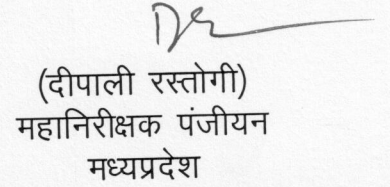 (दीपाली रस्तोगी)
महानिरीक्षक पंजीयन
मध्यप्रदेश